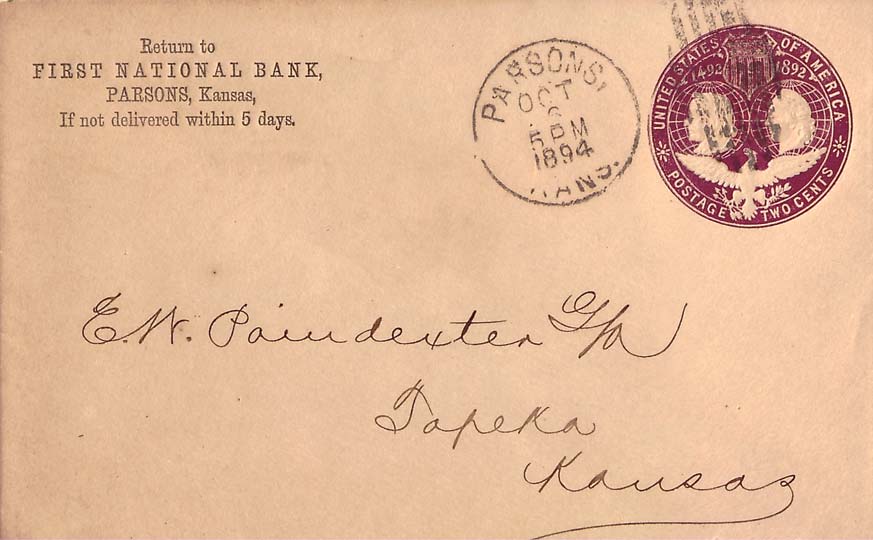 Return to
FIRST NATIONAL BANK,
PARSONS, Kansas,
If not delivered within 5 days.
PARSONS,
OCT
6
5 PM
1894
KANS.
UNITED STATES OF AMERICA
1492 1892
POSTAGE TWO CENTS
E. W. Poindexter
Topeka
Kansas